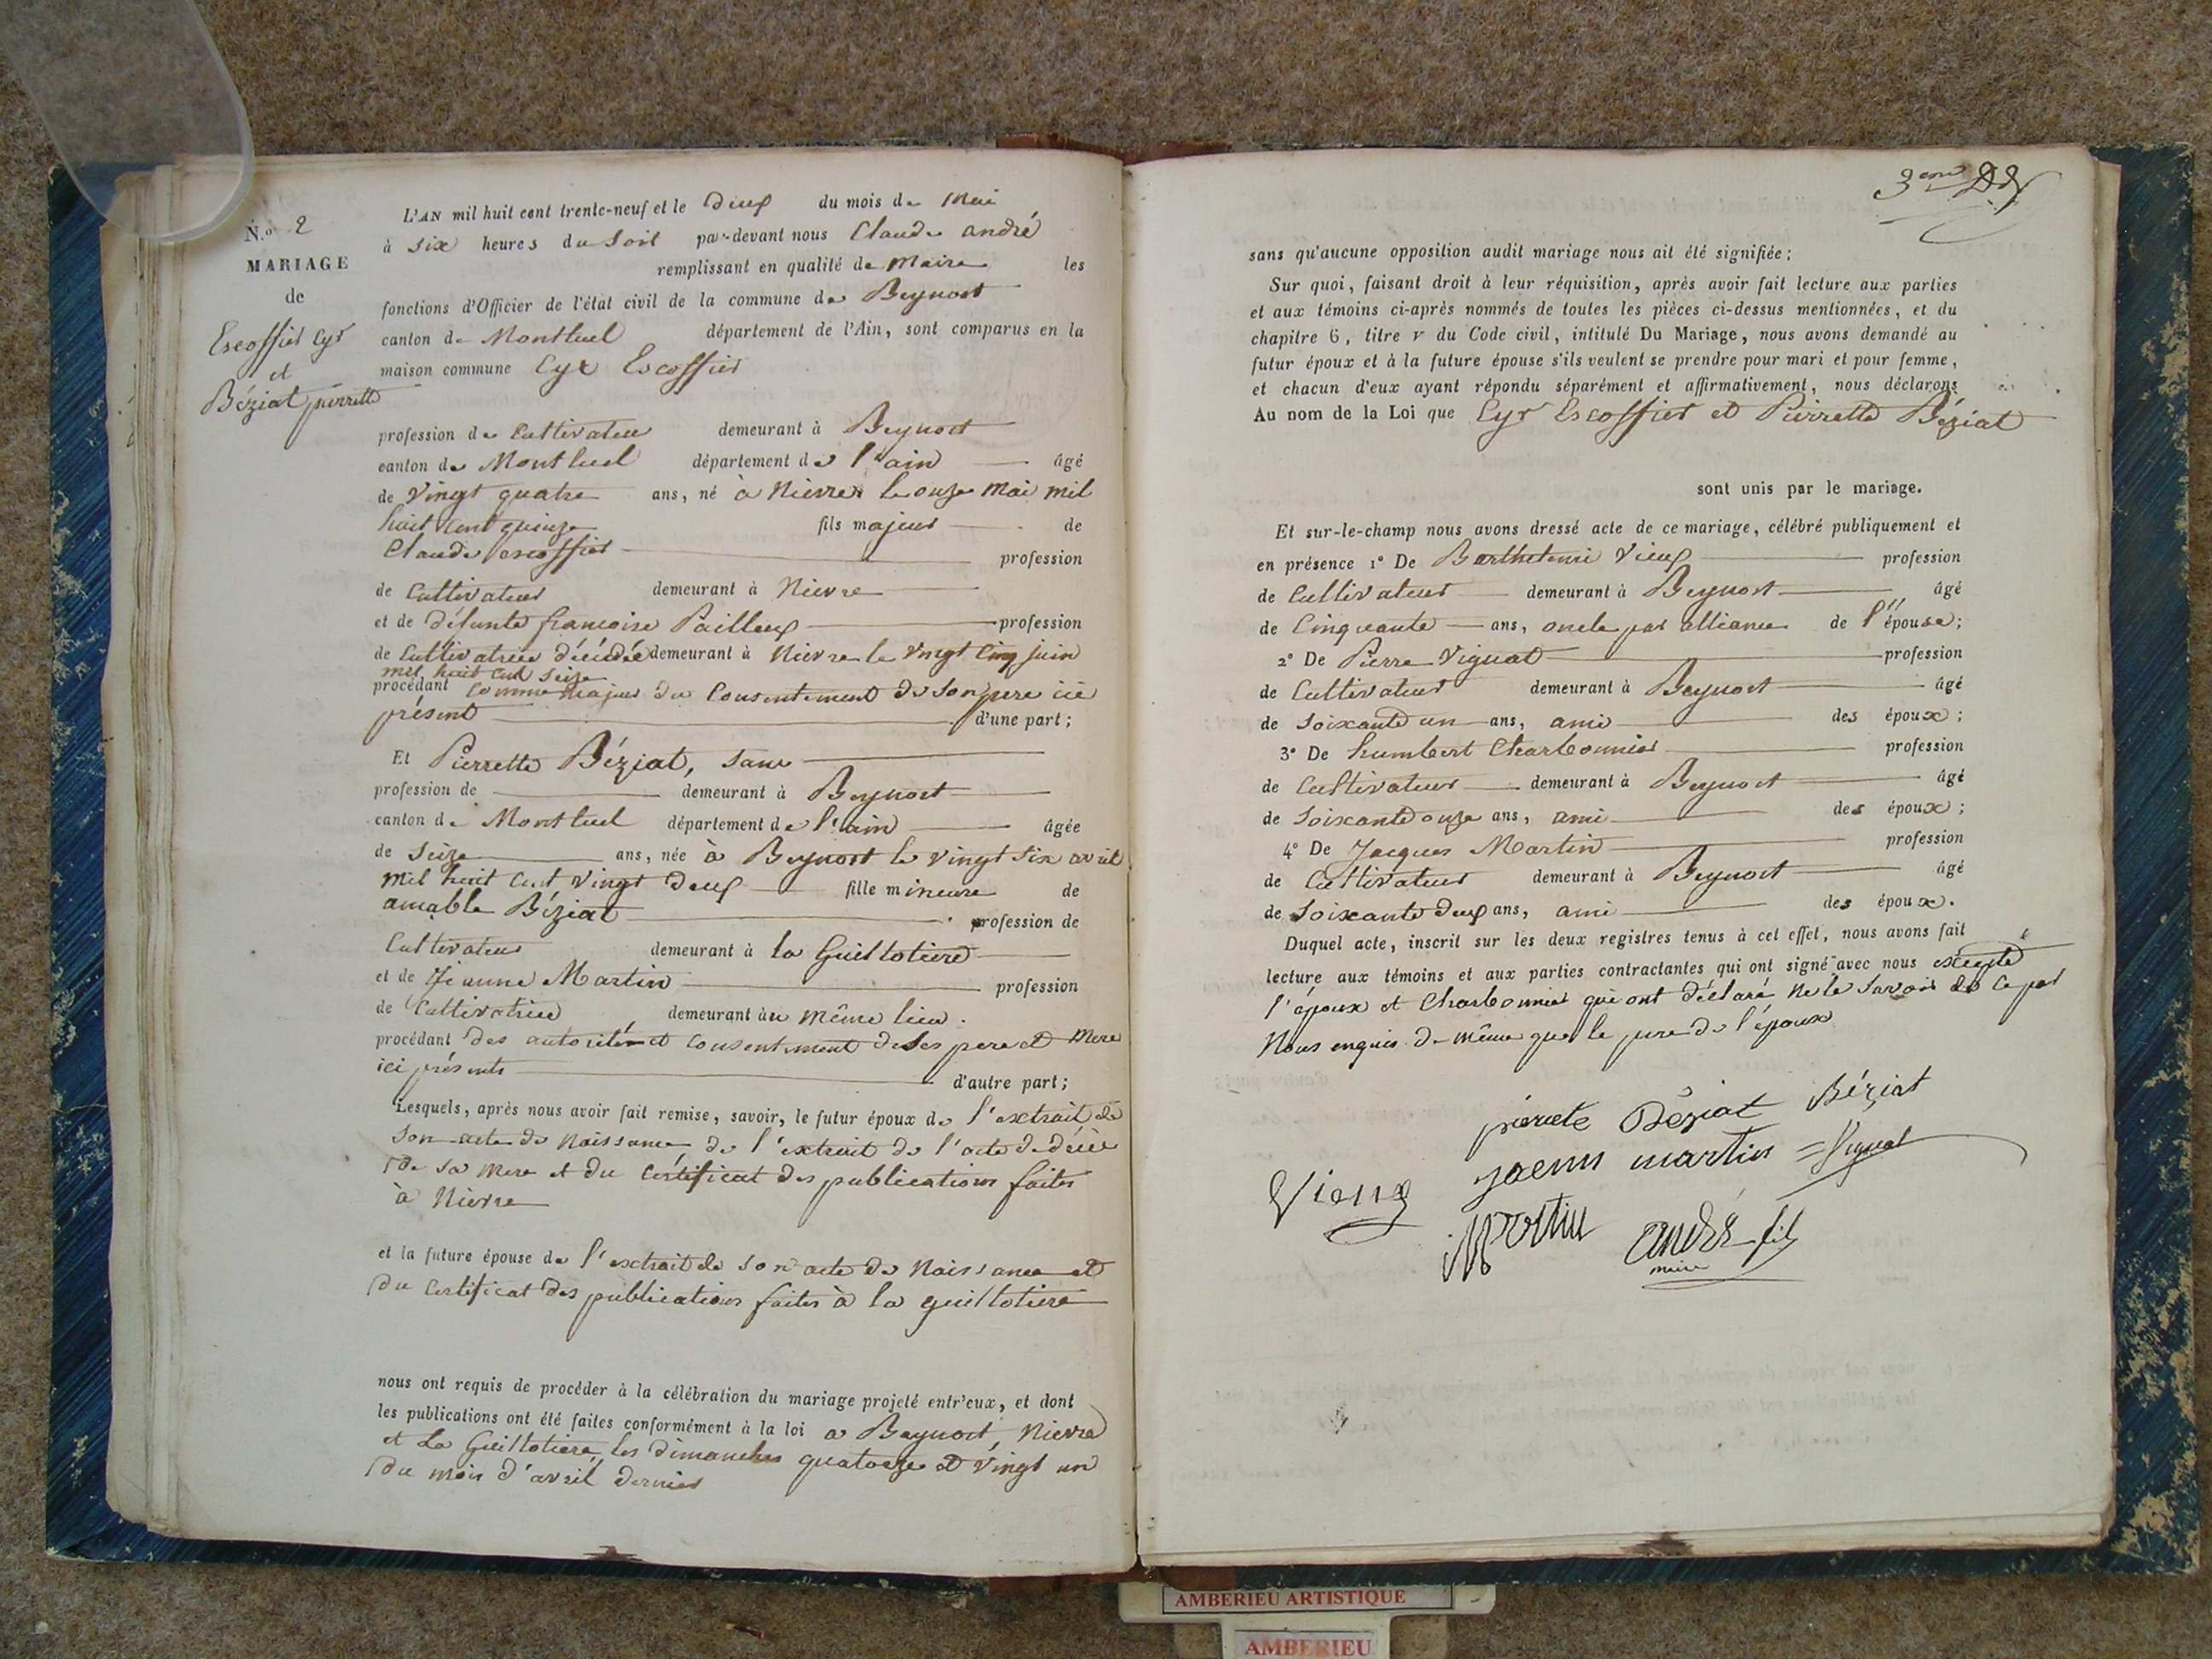 N.° 2
MARIAGE
de
Escoffier Cyr
et
Béziat pierrette
L'AN mil huit cent trente-neuf et le deux du mois de Mai
à six heures du soir par-devant nous Claude andré
remplissant en qualité de Maire les
fonctions d'Officier de l'état civil de la commune de Beynost
canton de Montluel département de l'Ain, sont comparus en la
maison commune Cyr Escoffier
profession de Cultivateur demeurant à Beynost
canton de Montluel département de l'ain âgé
de vingt quatre ans, né à Nievroz le onze Mai mil
huit cent quinze fils majeur de
Claude escoffier profession
de Cultivateur demeurant à Nievre
et de défunte françoise Pailleux profession
de Cultivatrice décédée demeurant à Nievre le vingt Cinq juin
mil huit cent seize
procédant comme majeur du Consentement de son père ici
présent d'une part;
Et Pierrette Béziat, sans
profession de demeurant à Beynost
canton de Montluel département de l'ain âgée
de seize ans, née à Beynost le vingt six avril
mil huit cent vingt deux fille mineure de
amable Béziat profession de
Cultivateur demeurant à la Guillotière
et de Jeanne Martin profession
de Cultivatrice demeurant au même lieu.
procédant des autorité et consentement de ses pere et Mere
ici présents d'autre part;
Lesquels, après nous avoir fait remise, savoir, le futur époux de l'extrait de
son acte de Naissance, de l'extrait de l'acte de décès
de sa mere et du Certificat des publications faites
à Nievre
et la future épouse de l'extrait de son acte de Naissance et
du Certificat des publications faites à la guillotiere
nous ont requis de procéder à la célébration du mariage projeté entr'eux, et dont
les publications ont été faites conformément à la loi a Beynost, Nievre
et La Guillotiere, les dimanches quatorze et vingt un
du mois d'avril dernier
3eme
sans qu'aucune opposition audit mariage nous ait été signifiée;
Sur quoi, faisant droit à leur réquisition, après avoir fait lecture aux parties
et aux témoins ci-après nommés de toutes les pièces ci-dessus mentionnées, et du
chapitre 6, titre v du Code civil, intitulé Du Mariage, nous avons demandé au
futur époux et à la future épouse s'ils veulent se prendre pour mari et pour femme,
et chacun d'eux ayant répondu séparément et affirmativement, nous déclarons
Au nom de la Loi que Cyr Escoffier et Pierrette Béziat
sont unis par le mariage.
Et sur-le-champ nous avons dressé acte de ce mariage, célébré publiquement et
en présence 1° De Barthelemi Vieux profession
de Cultivateur demeurant à Beynost âgé
de Cinquante ans, oncle par alliance de l'épouse;
2° De Pierre Vignat profession
de Cultivateur demeurant à Beynost âgé
de soixante un ans, ami des époux;
3° De humbert Charbonnier profession
de Cultivateur demeurant à Beynost âgé
de soixante onze ans, ami des époux;
4° De Jacques Martin profession
de Cultivateur demeurant à Beynost âgé
de soixante deux ans, ami des époux.
Duquel acte, inscrit sur les deux registres tenus à cet effet, nous avons fait
lecture aux témoins et aux parties contractantes qui ont signé avec nous excepté
l'époux et Charbonnier qui ont déclaré ne le savoir de ce par
Nous enquis de même que le pere de l'époux
pierrete Béziat Béziat
martin Vignat
Vieux
Martin andré fils
maire
AMBERIEU ARTISTIQUE
AMBERIEU